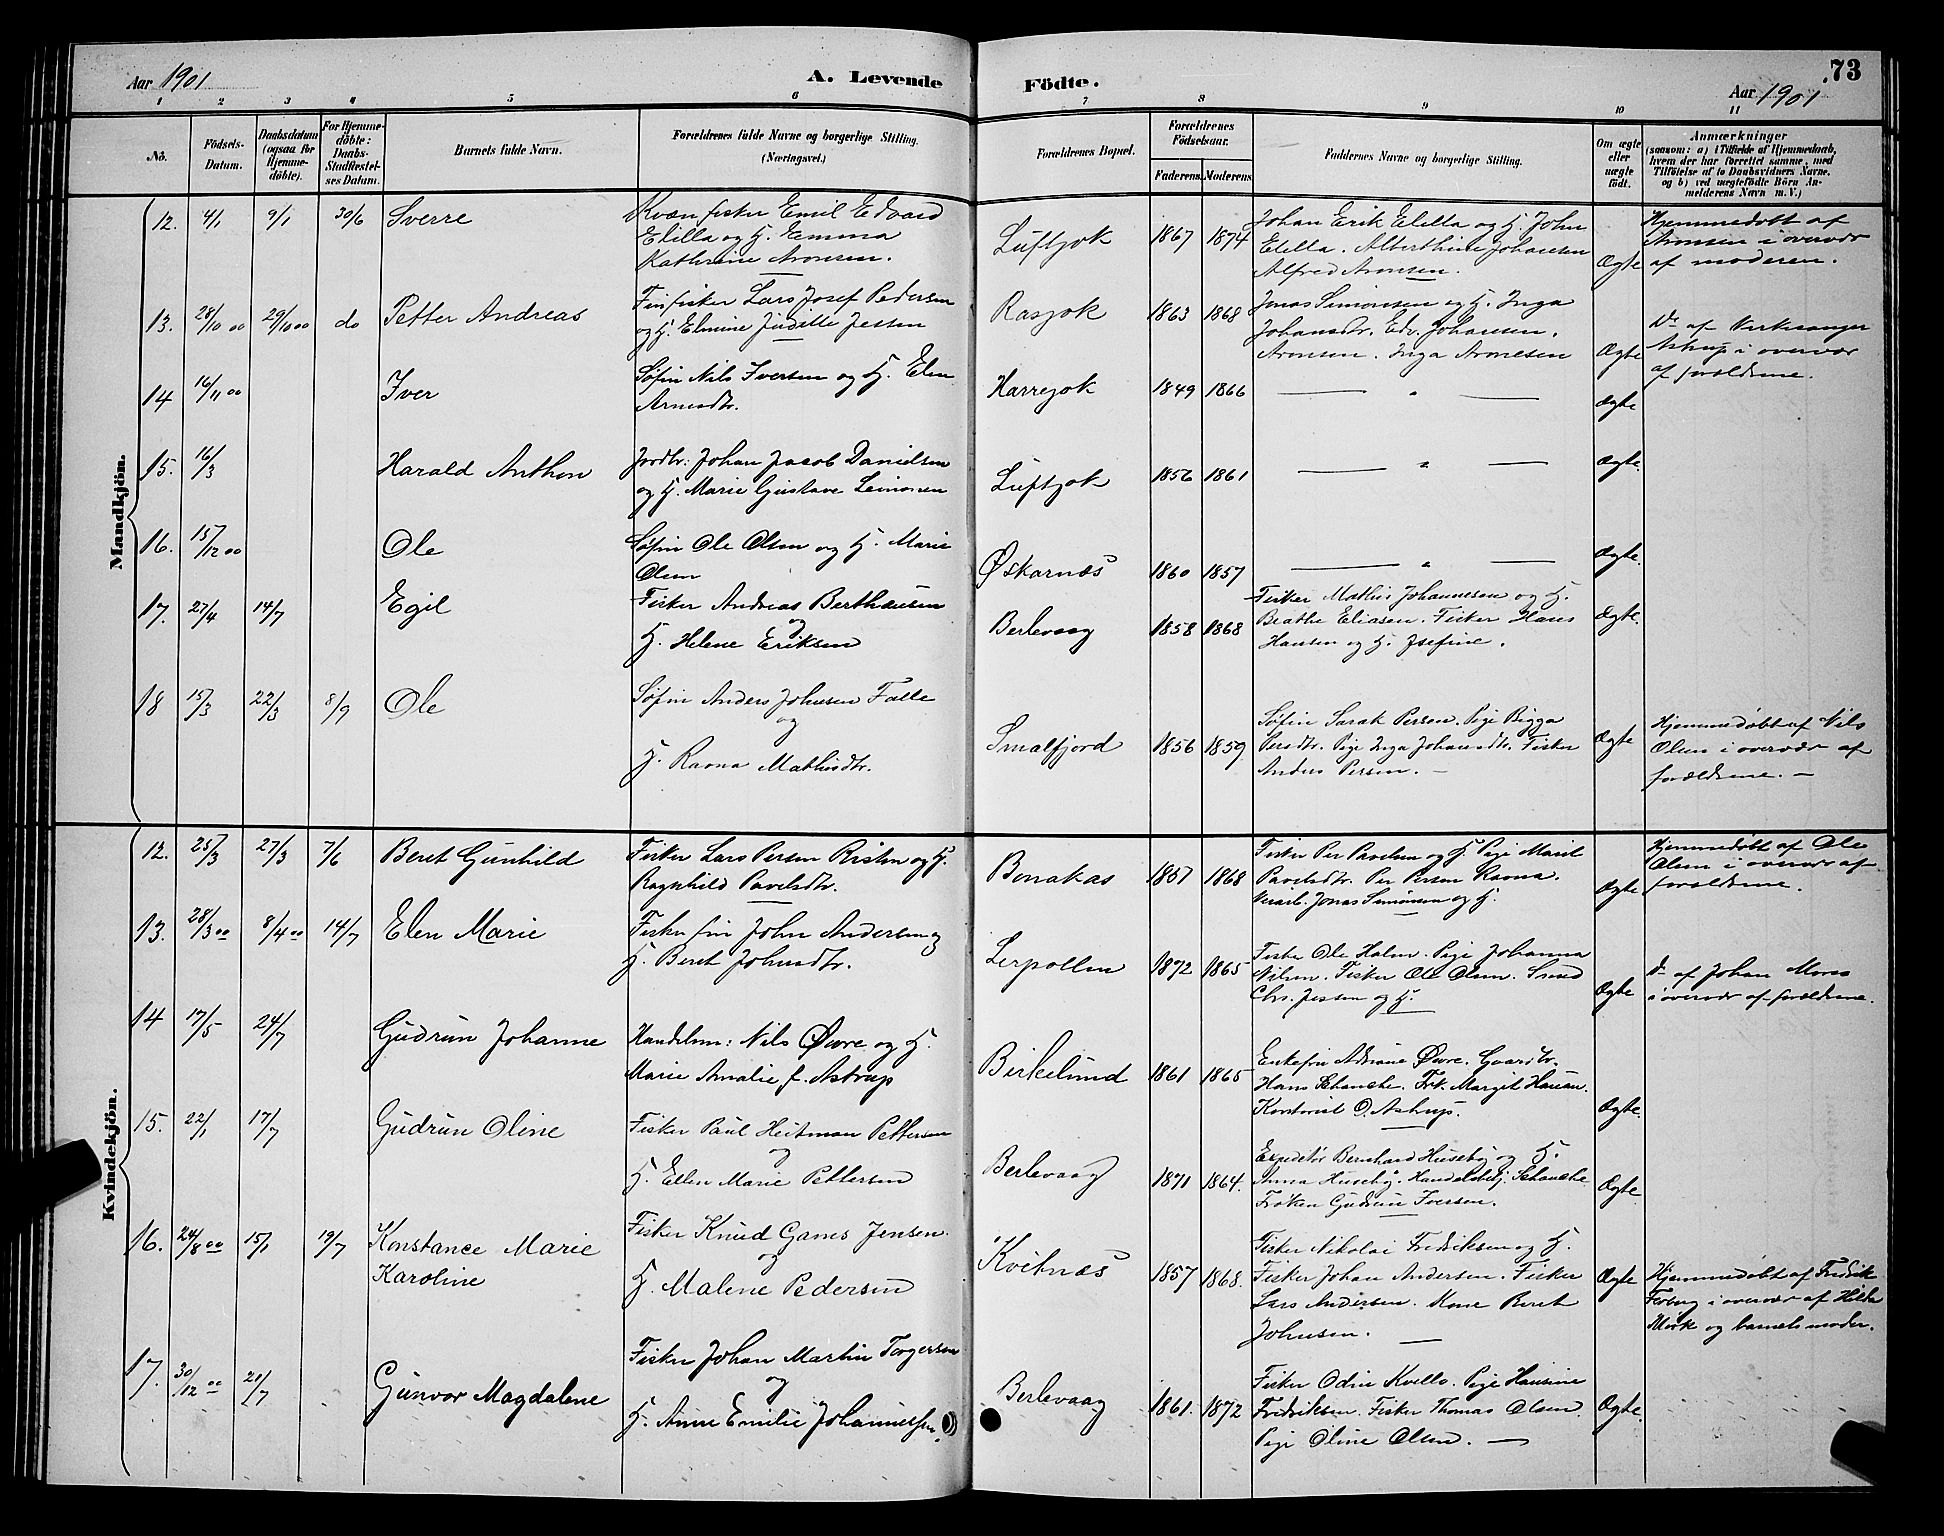 Aar 1901
A. Levende
Födte.
Aar 1901
73
1 2 3 4 5 6 7 8 9 10 11
No.
Födsels-Datum.
Daabsdatum (ogsaa for Hjemme-döbte).
For Hjemme-döbte: Daabs-Stadfæstel-ses Datum.
Barnets fulde Navn.
Forældrenes fulde Navne og borgerlige Stilling. (Næringsvei.)
Forældrenes Bopæl.
Forældrenes Födselsaar.
Faderens. Moderens.
Faddernes Navne og borgerlige Stilling.
Om ægte eller uægte födt.
Anmærkninger
(saasom: a) i Tilfælde af Hjemmedaab, hvem der har forrettet samme, med Tilföielse af to Daabsvidners Navne, og b) ved uægtefödte Börn An-melderens Navn m. V.)
Mandkjön.
12. 4/1 9/1 30/6 Sverre
Kvæn fisker Emil Edvard
Elilla og H. Emma
Kathrine Aronsen.
Luftjok 1867 1874
Johan Erik Elilla og H. John
Elilla. Alberthine Johansen
Alfred Aronsen.
Ægte
Hjemmedøbt af
Aronsen i overvær
af moderen.
13. 28/10 00 29/10 00 do Petter Andreas
Finfisker Lars Josef Pedersen
og H. Elmine Judille Jessen
Rasjok 1863 1868
Jonas Simonsen og H. Inga
Johansdtr. Edv. Johansen.
Aronsen. Inga Aronesen
Ægte
Do af Kirkesanger
Astrup i overvær
af forældrene.
14 16/11 00 Iver
Søfin Nils Iversen og H. Elen
Arnesdtr.
Harrejok 1849 1866
— " —
Ægte
15. 16/3 Harald Anthon
Jordbr: Johan Jacob Danielsen
og H. Marie Gustava
Luftjok 1856 1861
— " —
Ægte.
16. 15/12 00 Ole
Søfin Ole Olsen og H. Marie
Olsen
Øskarnæs 1860 1857
— " —
Ægte.
17. 27/4 14/7 Egil
Fisker Andreas Berthausen
og
H. Helene Eriksen
Berlevaag 1858 1868
Fisker Mathis Johannesen og H.
Beathe Eliasen. Fisker Hans
Hansen og H. Josefine.
Ægte.
18 15/3 22/3 8/9 Ole
Søfin Anders Johnsen Falle
og
H. Ravna Mathisdtr.
Smalfjord 1856 1859.
Søfin Sarak Persen. Pige Bigga
Persdtr. Pige Inga Johansdtr. Fisker
Anders Persen. —
Ægte
Hjemmedøbt af Nils
Olsen i overvær af
forældrene. —
Kvindekjön.
12. 25/3 27/3 7/6 Beret Gunhild
Fisker Lars Persen Risten og H.
Ragnhild Pavelsdtr.
Bonakas 1857 1868
Fisker Per Pavelsen og H. Pige Marit
Pavelsdtr. Per Persen Ravna.
Jonas Simonsen og H.
Ægte
Hjemmedøbt af Ole
Olsen i overvær af
forældrene.
13. 28/3 00 8/4 00 14/7 Elen Marie
Fisker fin John Andersen og
H. Beret Johnsdtr.
Lerpollen 1872 1865
Fisker Ole Halm. Pige Johanna
Nilsen. Fisker Ole Olsen. Smed
Chr. Jessen og H.
Ægte
Do af Johan Moras
i overvær af forældrene.
14 17/5 24/7 Gudrun Johanne
Handelsm: Nils Øvre og H.
Marie Amalie f. Astrup
Birkelund 1861 1865
Enkefru Adriane Øvre. Gaardbr.
Hans Schanche. Frk. Margit Hansen.
Kontorist O. Astrup.
Ægte.
15. 22/1 17/7 Gudrun Oline
Fisker Paul Heitman Pettersen
og
H. Ellen Marie Pettersen
Berlevaag 1871 1864.
Expeditør Bernhard Husebÿ og H.
Anna Husebÿ. Handelsbetj. Schanche
Frøken Gudrun Iversen.
Ægte
16. 24/8 00 15/1 19/7 Konstance Marie
Karoline
Fisker Knud Gams Jensen.
og
H. Malene Pedersen
Kvitnæs 1857 1868.
Fisker Nikolai Fredriksen og H.
Fisker Johan Andersen. Fisker
Lars Andersen. Kone Beret
Johnsen. —
Ægte
Hjemmedøbt af Fredrik
Forberg i overvær af Hilda
Mørk og barnets moder.
17. 30/12 00 21/7 Gunvor Magdalene
Fisker Johan Martin Torgersen
og
H. Anne Emilie Johannessen.
Berlevaag 1861. 1872
Fisker Odin Kvello. Pige Hansine
Fredriksen. Fisker Thomas Olsen.
Pige Oline Olsen. —
Ægte.